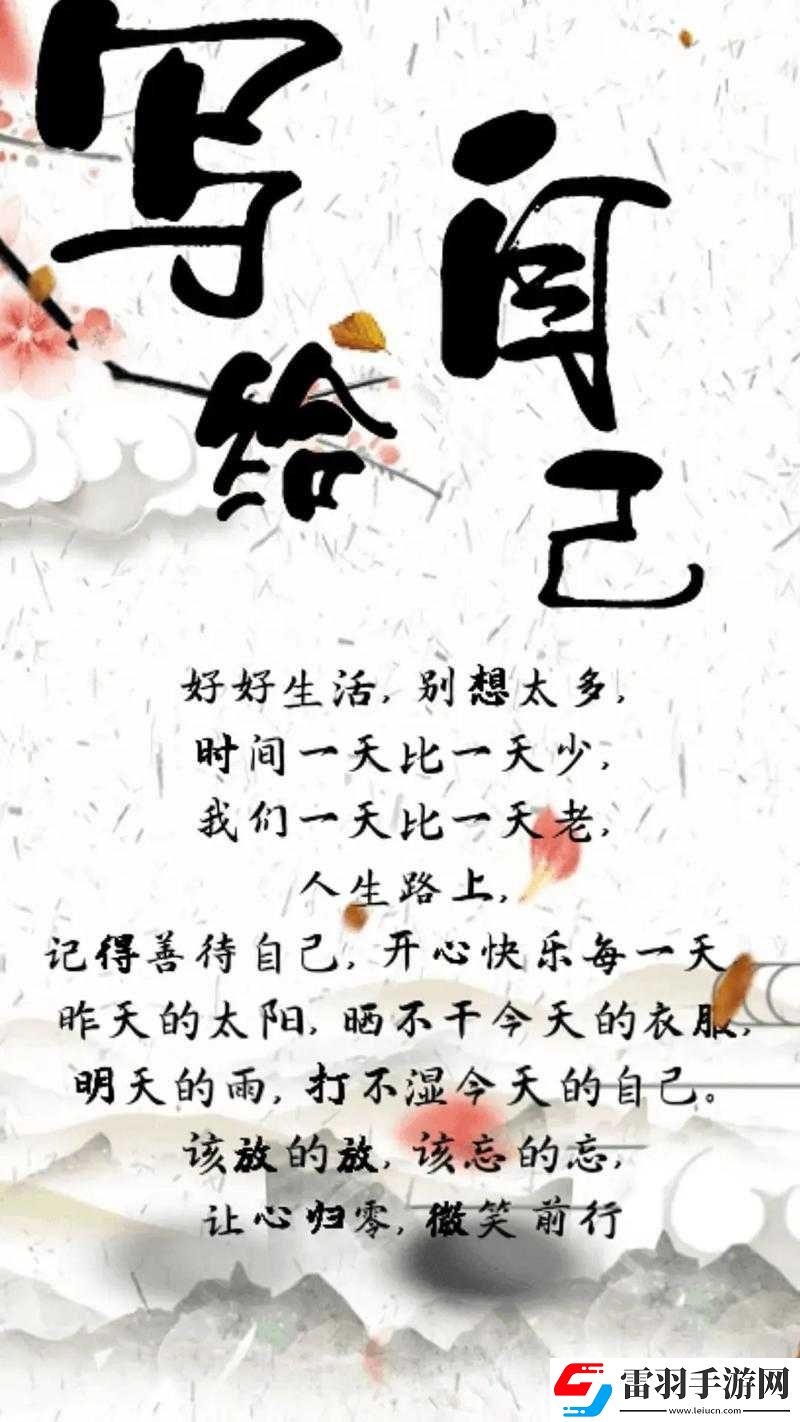 写给
自己
好好生活,别想太多,
时间一天比一天少,
我们一天比一天老,
人生路上,
记得善待自己,开心快乐每一天
昨天的太阳,晒不干今天的衣服,
明天的雨,打不湿今天的自己。
该放的放,该忘的忘,
让心归零,微笑前行
雷羽手游网
www.leiucn.com